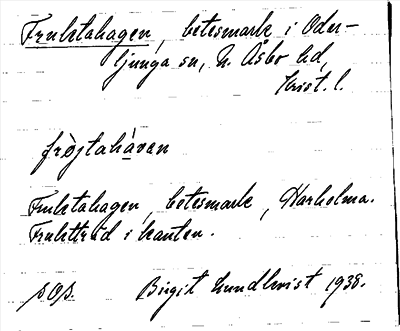 Fruktahagen, betesmark i Oder-
ljunga sn, N. Åsbo hd,
Krist. l.
fròjtahàvan
Fruktahagen, betesmark, Harholma.
Fruktträd i kanten.
s. 
Birgit Lundkvist 1938.